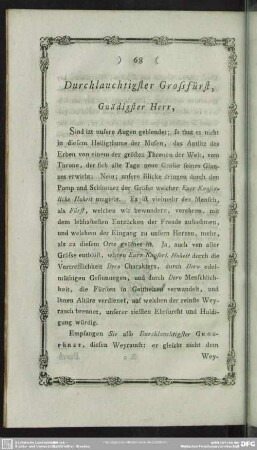 ) 68 (
Durchlauchtigster Grossfürst,
Gnädigster Herr,
Sind izt unsere Augen geblendet, so thut es nicht
in diesem Heiligthume der Musen, das Antlitz des
Erben von einem der größten Thronen der Welt, vom
Throne, der sich alle Tage neue Größe seines Glan-
zes erwirbt: Nein; unsere Blicke dringen durch den
Pomp und Schimmer der Größe welcher Eure Kayser-
liche Hoheit umgiebt. Es ist vielmehr der Mensch,
als Fürst, welchen wir bewundern, verehren, mit
dem lebhaftesten Entzücken der Freude aufnehmen,
und welchem der Eingang zu unsern Herzen, mehr,
als zu diesem Orte geöffnet ist. Ja, auch von aller
Größe entblößt, wären Eure Kayserl. Hoheit durch die
Vortreflichkeit Dero Charakters, durch Dero edel-
müthigen Gesinnungen, und durch Dero Menschlich-
heit, die Fürsten in Gottheiten verwandelt, und
ihnen Altäre verdienet, auf welchen der reinste Wey-
rauch brennet, unserer tiefsten Ehrfurcht und Huldi-
gung würdig.
Empfangen Sie also Durchlauchtigster Gross-
fürst, diesen Weyrauch: er gleicht nicht dem
Wey-